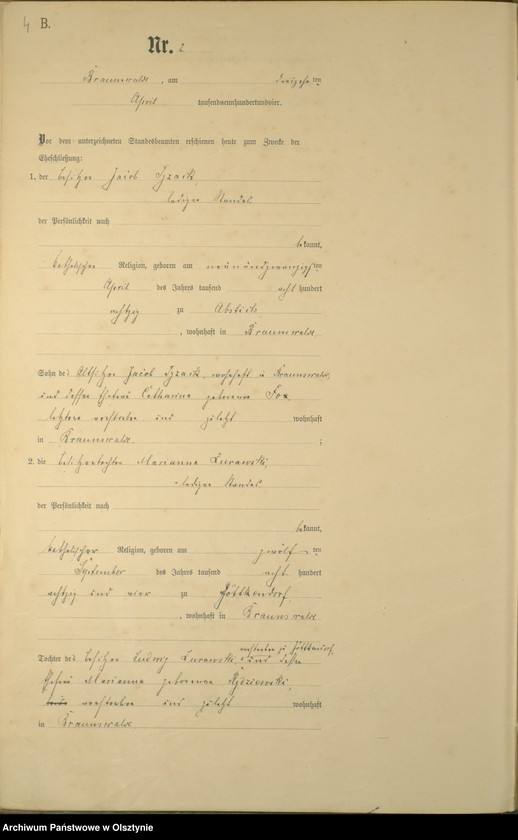 4 B.
Nr. 2
Braunswalde, am dreizehnten
April tausendneunhundertundvier.
Vor dem unterzeichneten Standesbeamten erschienen heute zum Zwecke der
Eheschließung:
1. der Besitzer Jacob
ledigen Standes
der Persönlichkeit nach
bekannt,
katholischer Religion, geboren am neunundzwanzigsten
April des Jahres tausend acht hundert
achtzig zu Abstich
, wohnhaft in Braunswalde
Sohn des Altsitzer Jacob wohnhaft in Braunswalde,
und dessen Ehefrau Catharina geborenen Fox
letztere verstorben und zuletzt wohnhaft
in Braunswalde ;
2. die Besitzertochter Marianna Zurawski,
ledigen Standes
der Persönlichkeit nach
bekannt,
katholischer Religion, geboren am zwölften
September des Jahres tausend acht hundert
achtzig und vier zu Göttkendorf
, wohnhaft in Braunswalde
verstorben zu Göttkendorf,
Tochter des Besitzer Ludwig Zurawski, und dessen
Ehefrau Marianna geborenen
verstorben und zuletzt wohnhaft
in Braunswalde
Archiwum Państwowe w Olsztynie